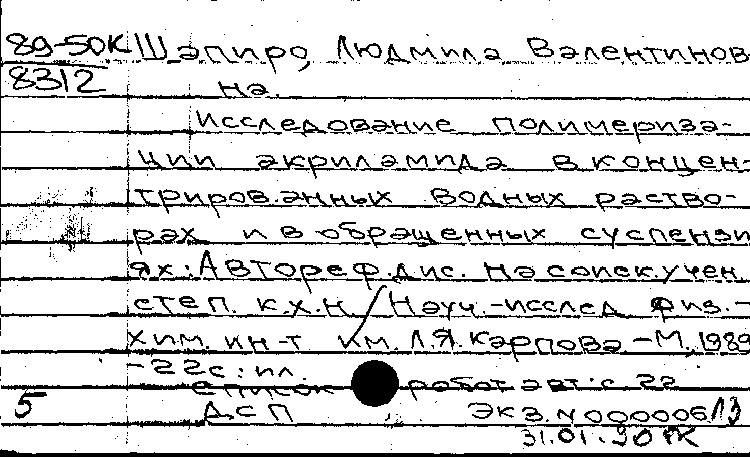 89-50К Шапиро, Людмила Валентинов-
8312 на.
Исследование полимериза-
ции акриламида в концен-
трированных водных раство-
рах и в обращенных суспензи
ях: Автореф. дис. на соиск. учен.
степ. к.х.н / Науч.-исслед физ.-
хим. ин-т им. Л.Я. Карпова. - М., 1989
-22с: ил.
Список работ авт: с. 22
5 ДСП Экз. N 00000613
31.01.90